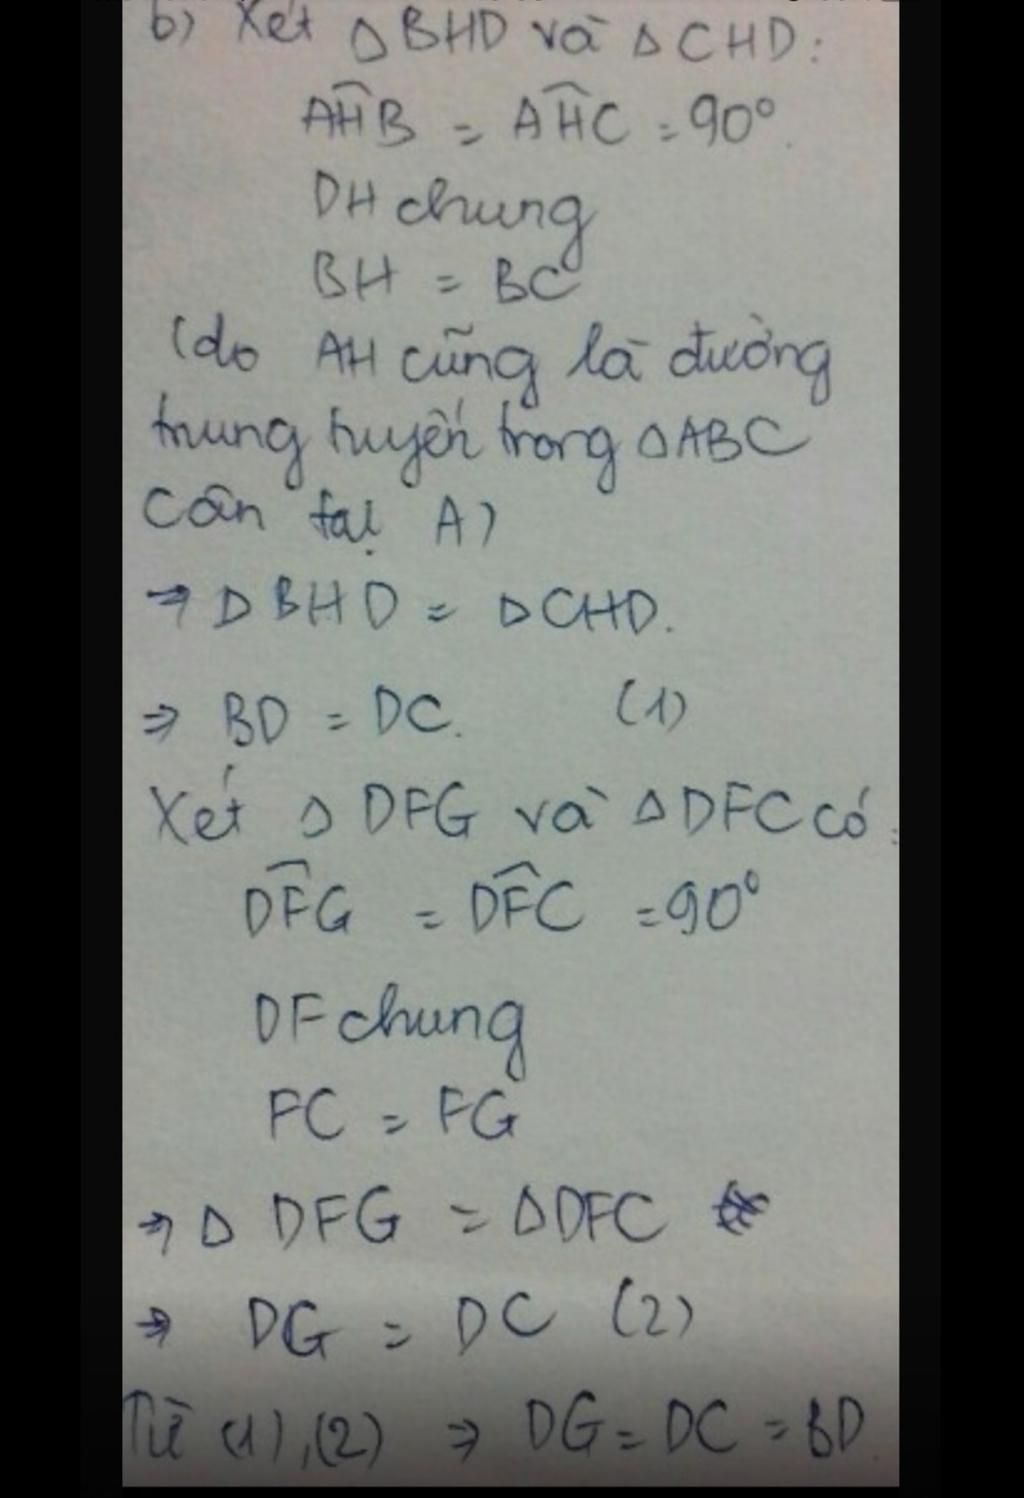 b) Xét Δ BHD và Δ CHD:
AĤB = AĤC = 90°.
DH chung
BH = BC
(do AH cũng là đường
trung tuyến trong ΔABC
cân tại A)
→ Δ BHD = ΔCHD.
⇒ BD = DC. (1)
Xét Δ DFG và ΔDFC có:
DF̂G = DF̂C = 90°
DF chung
FC = FG
⇒ Δ DFG = ΔDFC
⇒ DG = DC (2)
Từ (1),(2) ⇒ DG = DC = BD.